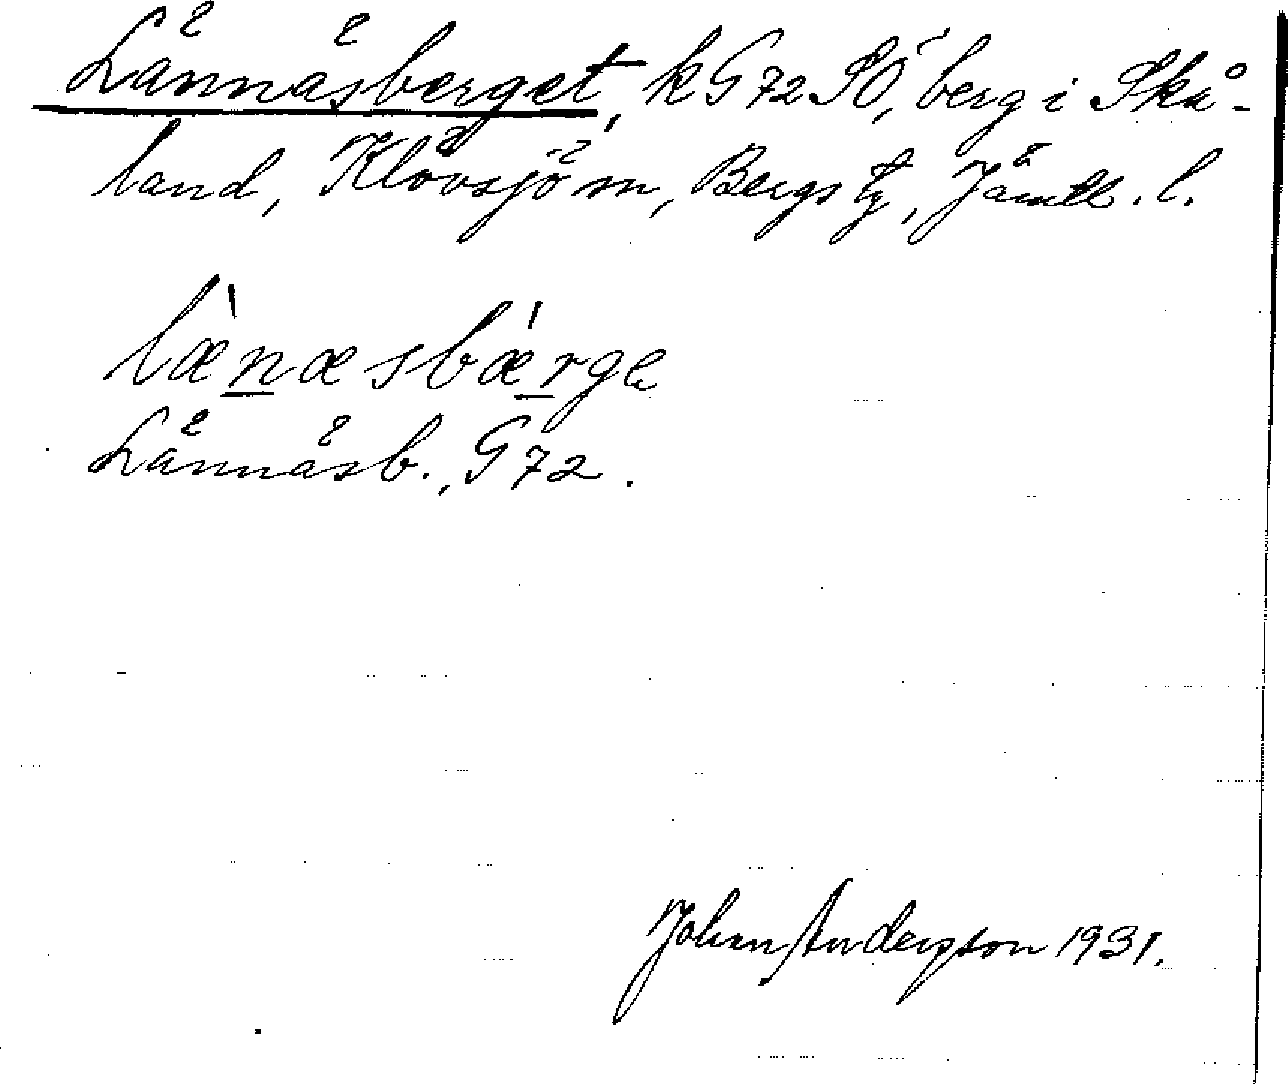 Lännäsberget, k G 72 SO, berg i Skå-
land, Klövsjö m, Bergs tg, Jämtl. l.
læ̀næsbǽrge
Lännäsb., G 72.
Johan Anderson 1931.